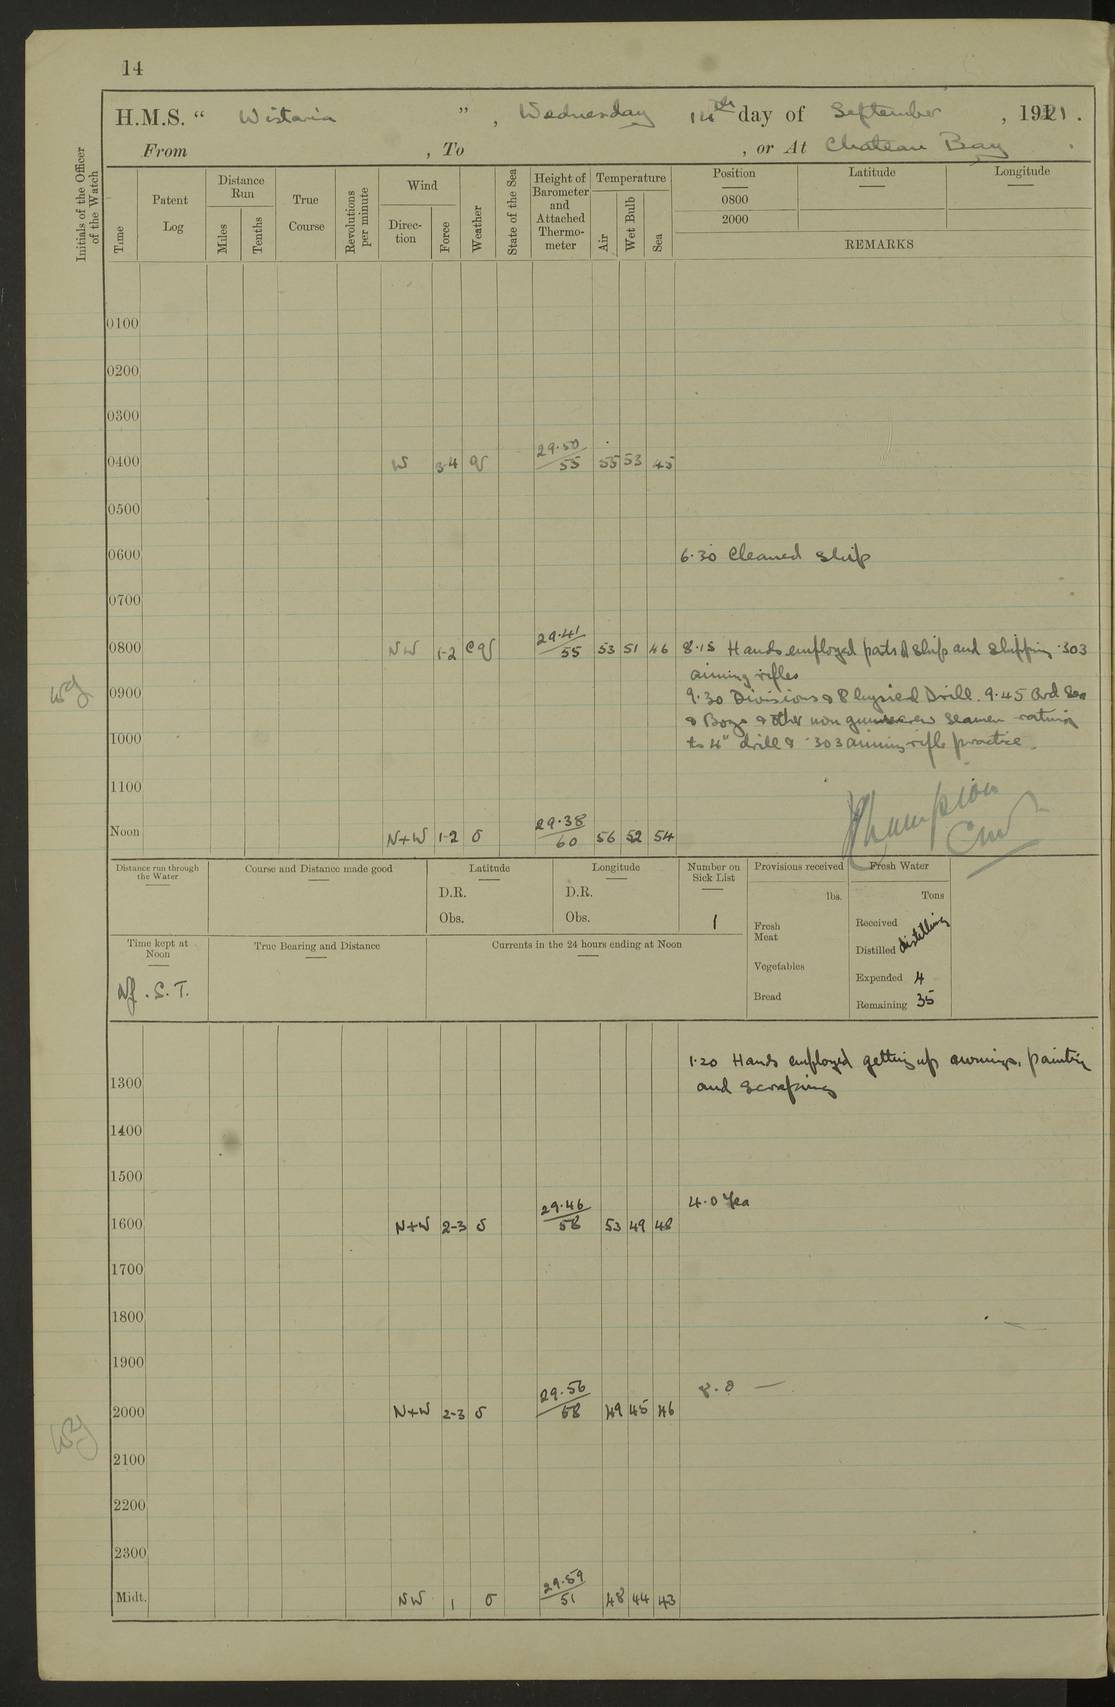 14
H.M.S. “ Wistaria ” , Wednesday 14th day of September , 1921 .
From , To , or At Chateau Bay
Initials of the Officer of the Watch
Time
Patent Log
Distance Run
Miles
Tenths
True Course
Revolutions per minute
Wind
Direction
Force
Weather
State of the Sea
Height of Barometer and Attached Thermometer
Temperature
Air
Wet Bulb
Sea
Position
0800
2000
Latitude
Longitude
REMARKS
0100
0200
0300
0400 W 3-4 29.50/55 55 53 45
0500
0600 6.30 Cleaned ship
0700
0800 NW 1-2 29.41/55 53 51 46 8.15 Hands employed parts of ship and shipping .303
aiming rifles
0900 9.30 Divisions & Physical Drill. 9.45 Ord Sea
& Boys & other non guns crew Seamen rating
1000 to 4" drill & .303 aiming rifle practice.
1100
Noon N+W 1-2 o 29.38/60 56 52 54
Champion
Cmdr
Distance run through the Water
Course and Distance made good
Latitude
D.R.
Obs.
Longitude
D.R.
Obs.
Number on Sick List
1
Provisions received
lbs.
Fresh Meat
Vegetables
Bread
Fresh Water
Tons
Received
Distilled distilling
Expended 4
Remaining 35
Time kept at Noon
Nf. S. T.
True Bearing and Distance
Currents in the 24 hours ending at Noon
1.20 Hands employed getting up awnings, painting
1300 and scraping
1400
1500
4.0 Tea
1600 N+W 2-3 o 29.46/58 53 49 48
1700
1800
1900
8.0 —
2000 N+W 2-3 o 29.56/58 49 45 46
2100
2200
2300
Midt. NW 1 o 29.59/51 48 44 43